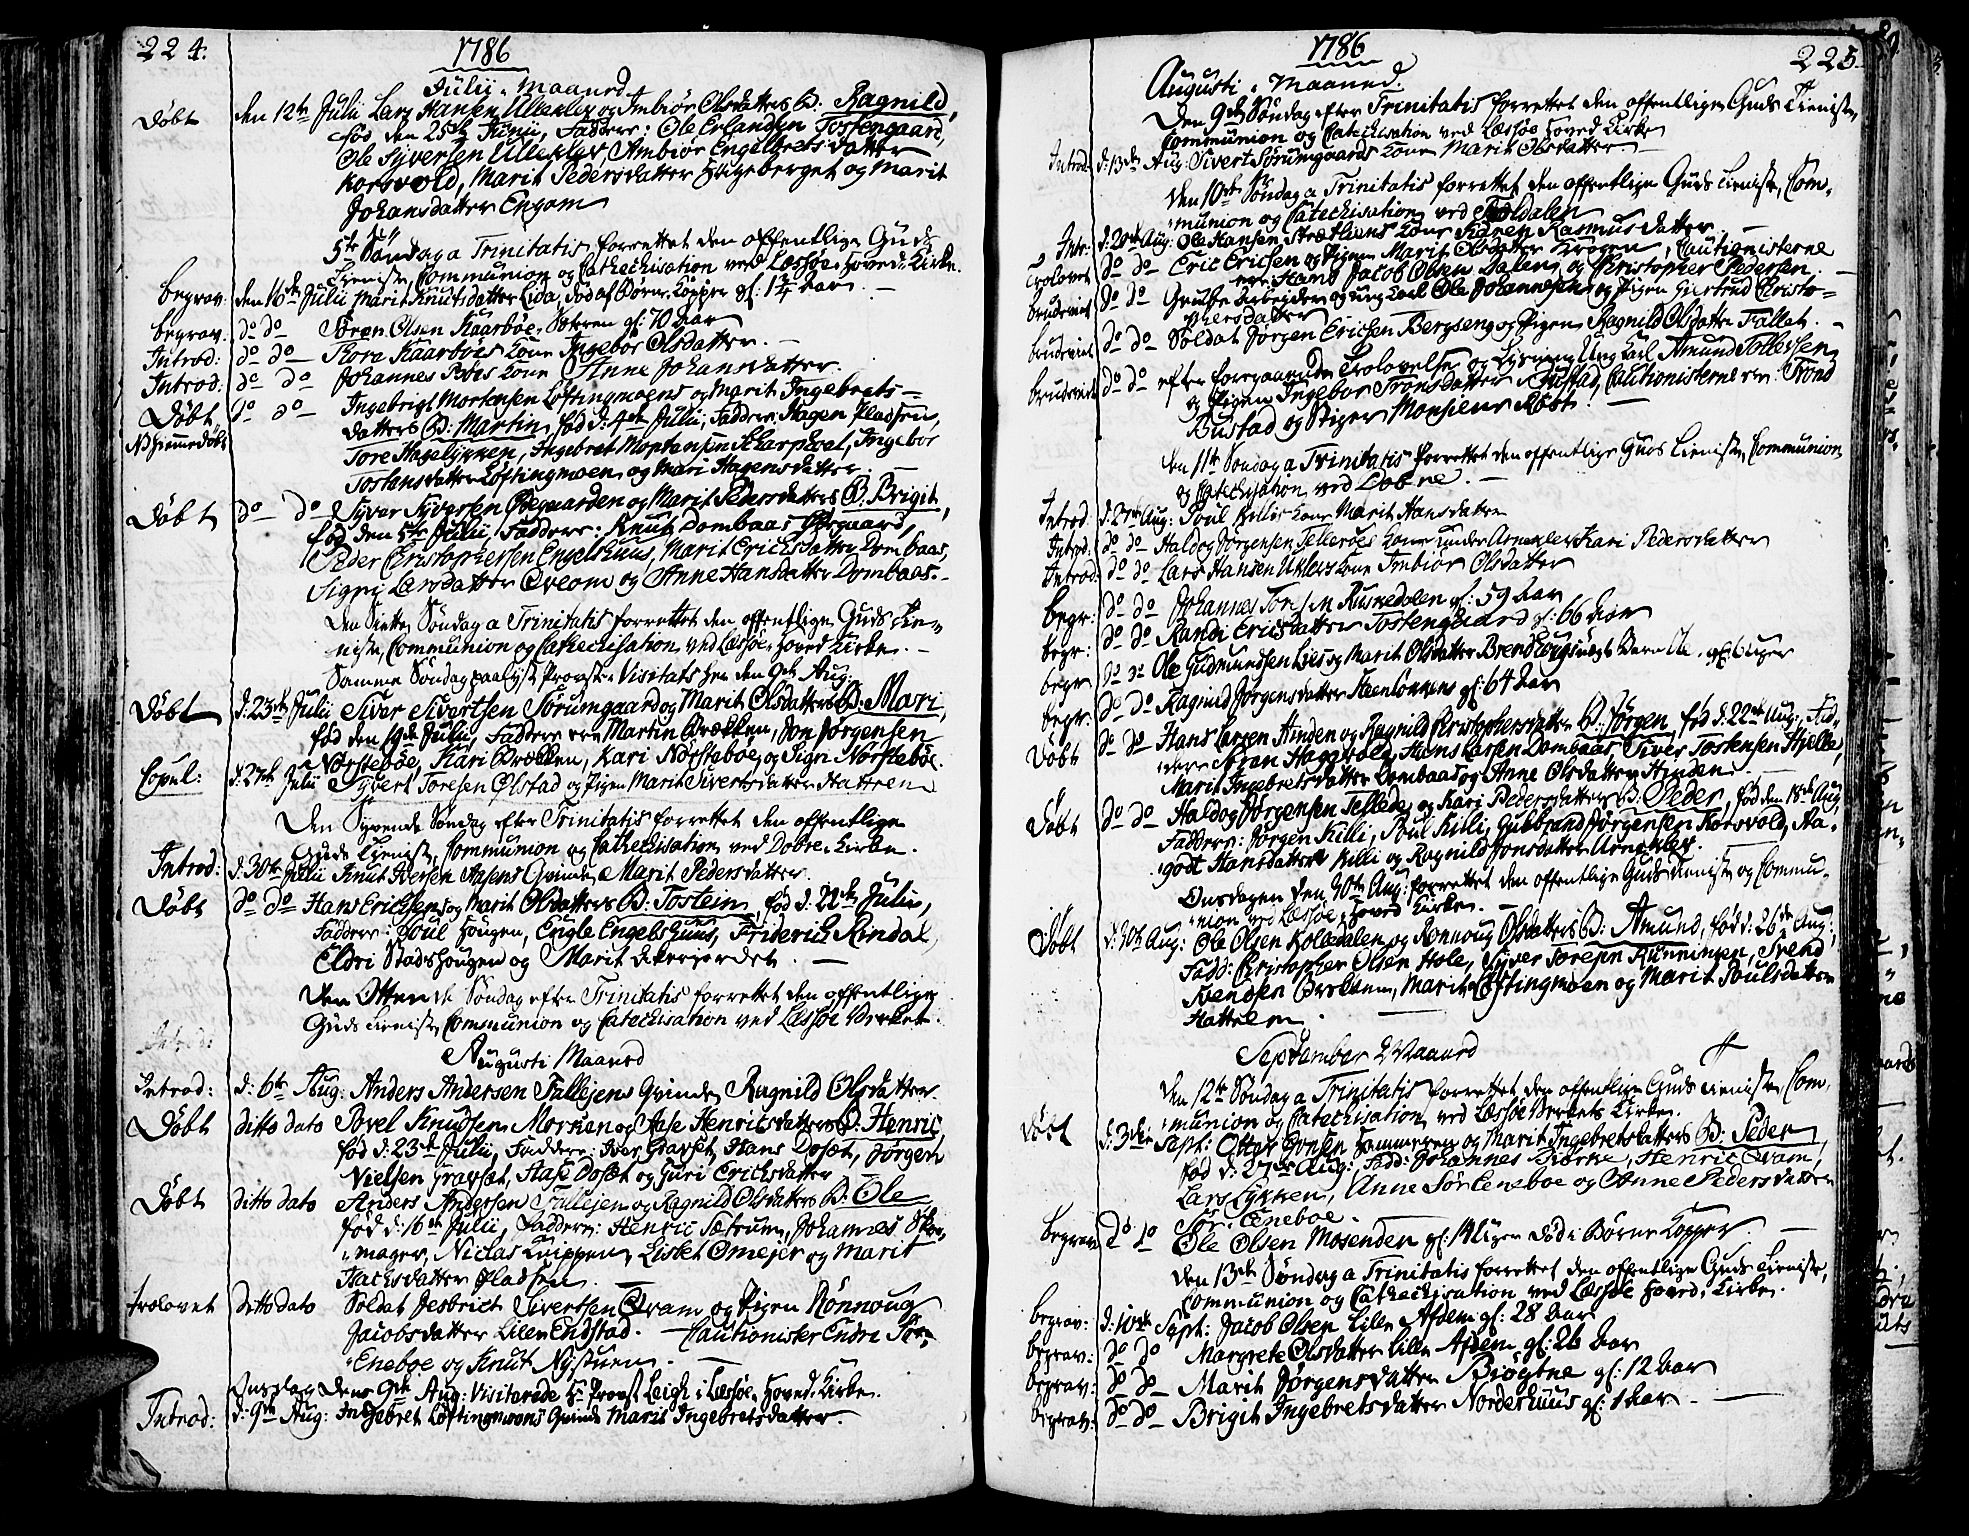 224.
1786
Julii Maaned
Døbt den 12te Julii Lars Hansen Ulleklev og Imbiør Olsdatters B: Ragnild,
fød den 25de Junii, Faddere: Ole Erlandsen Tostengaard,
Ole Syversen Ulleklev, Ambiør Engelbretsdatter
Korsvold, Marit Pedersdatter Hageberget og Marit
Johansdatter Engom
5te Søndag a Trinitatis forrettet den offentlige Guds
Tieniste, Communion og Cathechisation ved Læssøe Hoved-Kirke.
begrav: den 16de Julii Marit Knutsdatter Lida, død af Børne-Kopper gl: 1¼ Aar.
begrav: do do Søren Olsen Kaarbøe gl: 70 Aar
Introd: do do Tora Kaarbøes Kone Ingebor Olsdatter.
Introd: do do Johannes Kone Anne Johansdatter.
Døbt do do Ingebrigt Mortensen Løftingmoens og Marit Ingebrets-
NB hiemmedøbt datters B: Martin, fød d: 4de Julii, Faddere Hagen Pladsen,
Tore Hageløkken, Ingebret Mortensen Skarphol, Ingebor
Tostensdatter Løftingmoen og Mari Hagensdatter.
Døbt do do Syver Syversen Øregaarden og Marit Pedersdatters B. Brigit,
fød den 5te Julii, Faddere: Knut Dombaas Øregaard,
Peder Christophersen Engelshuus, Marit Erichsdatter Dombaas,
Signi Larsdatter Qveom og Anne Hansdatter Dombaas.
Den Siette Søndag a Trinitatis forrettet den offentlige Guds Tie-
niste, Communion og Cathechisation ved Læssøe Hoved Kirke.
Samme Søndag paalyst Provste Visitats her den 9de Aug:
Døbt d: 23de Julii Siver Sivertsen Sørumgaard og Marit Olsdatters B: Mari,
fød den 19de Julii, Faddere ere Martin Brækken, Jon Jørgensen
Norstebøe, Kari Brækken, Kari Norsteboe og Signi Norstebøe.
Copul: d: 27de Julii Syvert Toresen Ølstad og Pigen Marit Sivertsdatter Hattrem
Den Syvende Søndag efter Trinitatis forrettet den offentlige
Guds Tieniste, Communion og Cathechisation ved Dobre-Kirke.
Introd: d: 30te Julii Knut Iversen Aasens Qvinde Marit Pedersdatter.
Døbt do do Hans Erichsens og Marit Olsdatters B: Tostein, fød d: 22de Julii,
Faddere: Poul Hougen, Engle Engelshuus, Friderich Rindal
Eldri Stadshougen og Marit Akergierdet.
Den Ottende Søndag efter Trinitatis forrettet den offentlige
Guds Tieniste, Communion og Catechisation ved Læssøe Verket.
Augusti Maaned
Introd: d: 6te Aug: Anders Andersen Tallejens Qvinde Ragnild Olsdatter
Døbt ditto dato Povel Knudsen Morman og Aase Henrichsdatters B: Henric
fød d: 23de Julii, Faddere: Iver Gravset, Hans Dosæt, Jørgen
Nielsen Gravsæt, Aase Dosæt og Guri Erichsdatter
Døbt ditto dato Anders Andersen Tallejen og Ragnild Olsdatters B: Ole
fød d: 16de Julii, Faddere: Henric Sætrum, Johannes Skoe-
mager, Niclas Knippen, Lisbet Omejer og Marit
Isachsdatter Pladsen.
Trolovet ditto dato Soldat Jesbrict Sivertsen Qvam og Pigen Rønnoug
Jacobsdatter Lille Endstad. Cautionister Endre Sør-
Eneboe og Knut Nystuen.
Onsdag den 9de Aug: Visiterede Hr Provst Leigh i Læssøe Hoved-Kirke.
Introd: d: 9de Aug: Ingebret Løftingmoens Qvinde Marit Ingebretsdatter.
1786
225
Augusti Maaned.
Den 9de Søndag efter Trinitatis forrettet den offentlige Guds Tieniste,
Communion og Catechisation ved Læssøe Hoved Kirke
Introd: d: 13de Aug: Sivert Sørumgaards Kone Marit Olsdatter
Den 10de Søndag a Trinitatis forrettet den offentlige Guds Tieniste, Com-
munion og Catechisation ved Foldalen
Intr: d: 20de Aug: Ole Hansen Strætliens Kone Karen Rasmusdatter
Trolovet do do Eric Ericsen og Pigen Marit Olsdatter Krogen, Cautionisterne
ere Hans Jacob Olsen Dalen og Christopher Pedersen
brudeviet do do Grube Arbejder og ung Karl Ole Johannesen og Pigen Giertrud Christo-
phersdatter
brudeviet do do Soldat Jørgen Erichsen Bergseng og Pigen Ragnild Olsdatter Fallet.
brudeviet do do efter foregaaende Trolovelse og Lysning Ung Karl Amund Tollevsen
og Pigen Ingebor Tronsdatter Bustad, Cautionisterne ere Trond
Bustad og Stiger Monsieur Røst.
Den 11te Søndag a Trinitatis forrettet den offentlige Guds Tieniste, Communion
og Catechisation ved Dobre.
Introd: d: 27de Aug: Poul Killis Kone Marit Hansdatter
Introd: do do Haldog Jørgensen Telleroes Kone under Arneklev Kari Pedersdatter
Introd: do do Lars Hansen Uklevs Kone Imbiør Olsdatter
begr: do do Johannes Toresen Ruskedalen gl: 59 Aar
begr: do do Randi Ericsdatter Tostengaard gl: 66 Aar
begr do do Ole Gudmundsen Lies og Marit Olsdatter Barn Ole. gl: 6 uger
begr: do do Ragnild Jørgensdatter Steenløkkens gl: 64 Aar
Døbt do do Hans Larsen Hinden og Ragnild Christophersdatters B: Jørgen, fød d: 22de Aug: Fad-
dere Aran Haggevold, Hans Larsen Dombaas, Siver Tostensen Hjelle,
Marit Ingebretsdatter Dombaas og Anne Olsdatter Hinden.
Døbt do do Haldog Jørgensen Tellede, og Kari Pedersdatters B: Peder, fød den 18de Aug,
Faddere: Jørgen Killi, Poul Killi, Gubbrand Jørgensen Korsvold, Aa-
godt Hansdatter Killi og Ragnild Jonsdatter Arneklev.
Onsdagen den 30te Aug: forrettet den offentlige Guds Tieniste og Commu-
nion ved Læssøe Hoved Kirke.
Døbt d: 30te Aug: Ole Olsen Kolledalen og Rønnoug Olsdatters B: Amund, fød d: 26de Aug:
Fadd: Christopher Olsen Hole, Syver Toresen Runningen, Svend
Svendsen Ørebenn, Marit Løftingmoen og Marit Poulsdatter
Hattrem.
September Maaned
Den 12te Søndag a Trinitatis forrettet den offentlige Guds Tieniste, Com-
munion og Catechisation ved Læssøe Verkets Kirke.
Døbt d: 3de Sept: Otter Jonsen Hammeren og Marit Ingebretsdatters B: Peder
fød d: 27de Aug: Fadd: Johannes Biørke, Henric Qvam,
Lars Lykken, Anne Sør-Eneboe og Anne Pedersdatter
Sør-Eneboe.
begrav do do Ole Olsen Mosenden gl: 14 Uger død i Børne Kopper
Den 13de Søndag a Trinitatis forrettet den offentlige Guds Tieniste,
Communion og Cathechisation ved Læssøe Hoved-Kirke.
begrav: d: 10de Sept: Jacob Olsen Lille Afdem gl: 28 Aar
begrav: do do Margrete Olsdatter Lille Afdem gl: 26 Aar
begrav: do do Marit Jørgensdatter gl: 12 Aar
begrav: do do Brigit Ingebretsdatter Nordeshuus gl: 1 Aar.